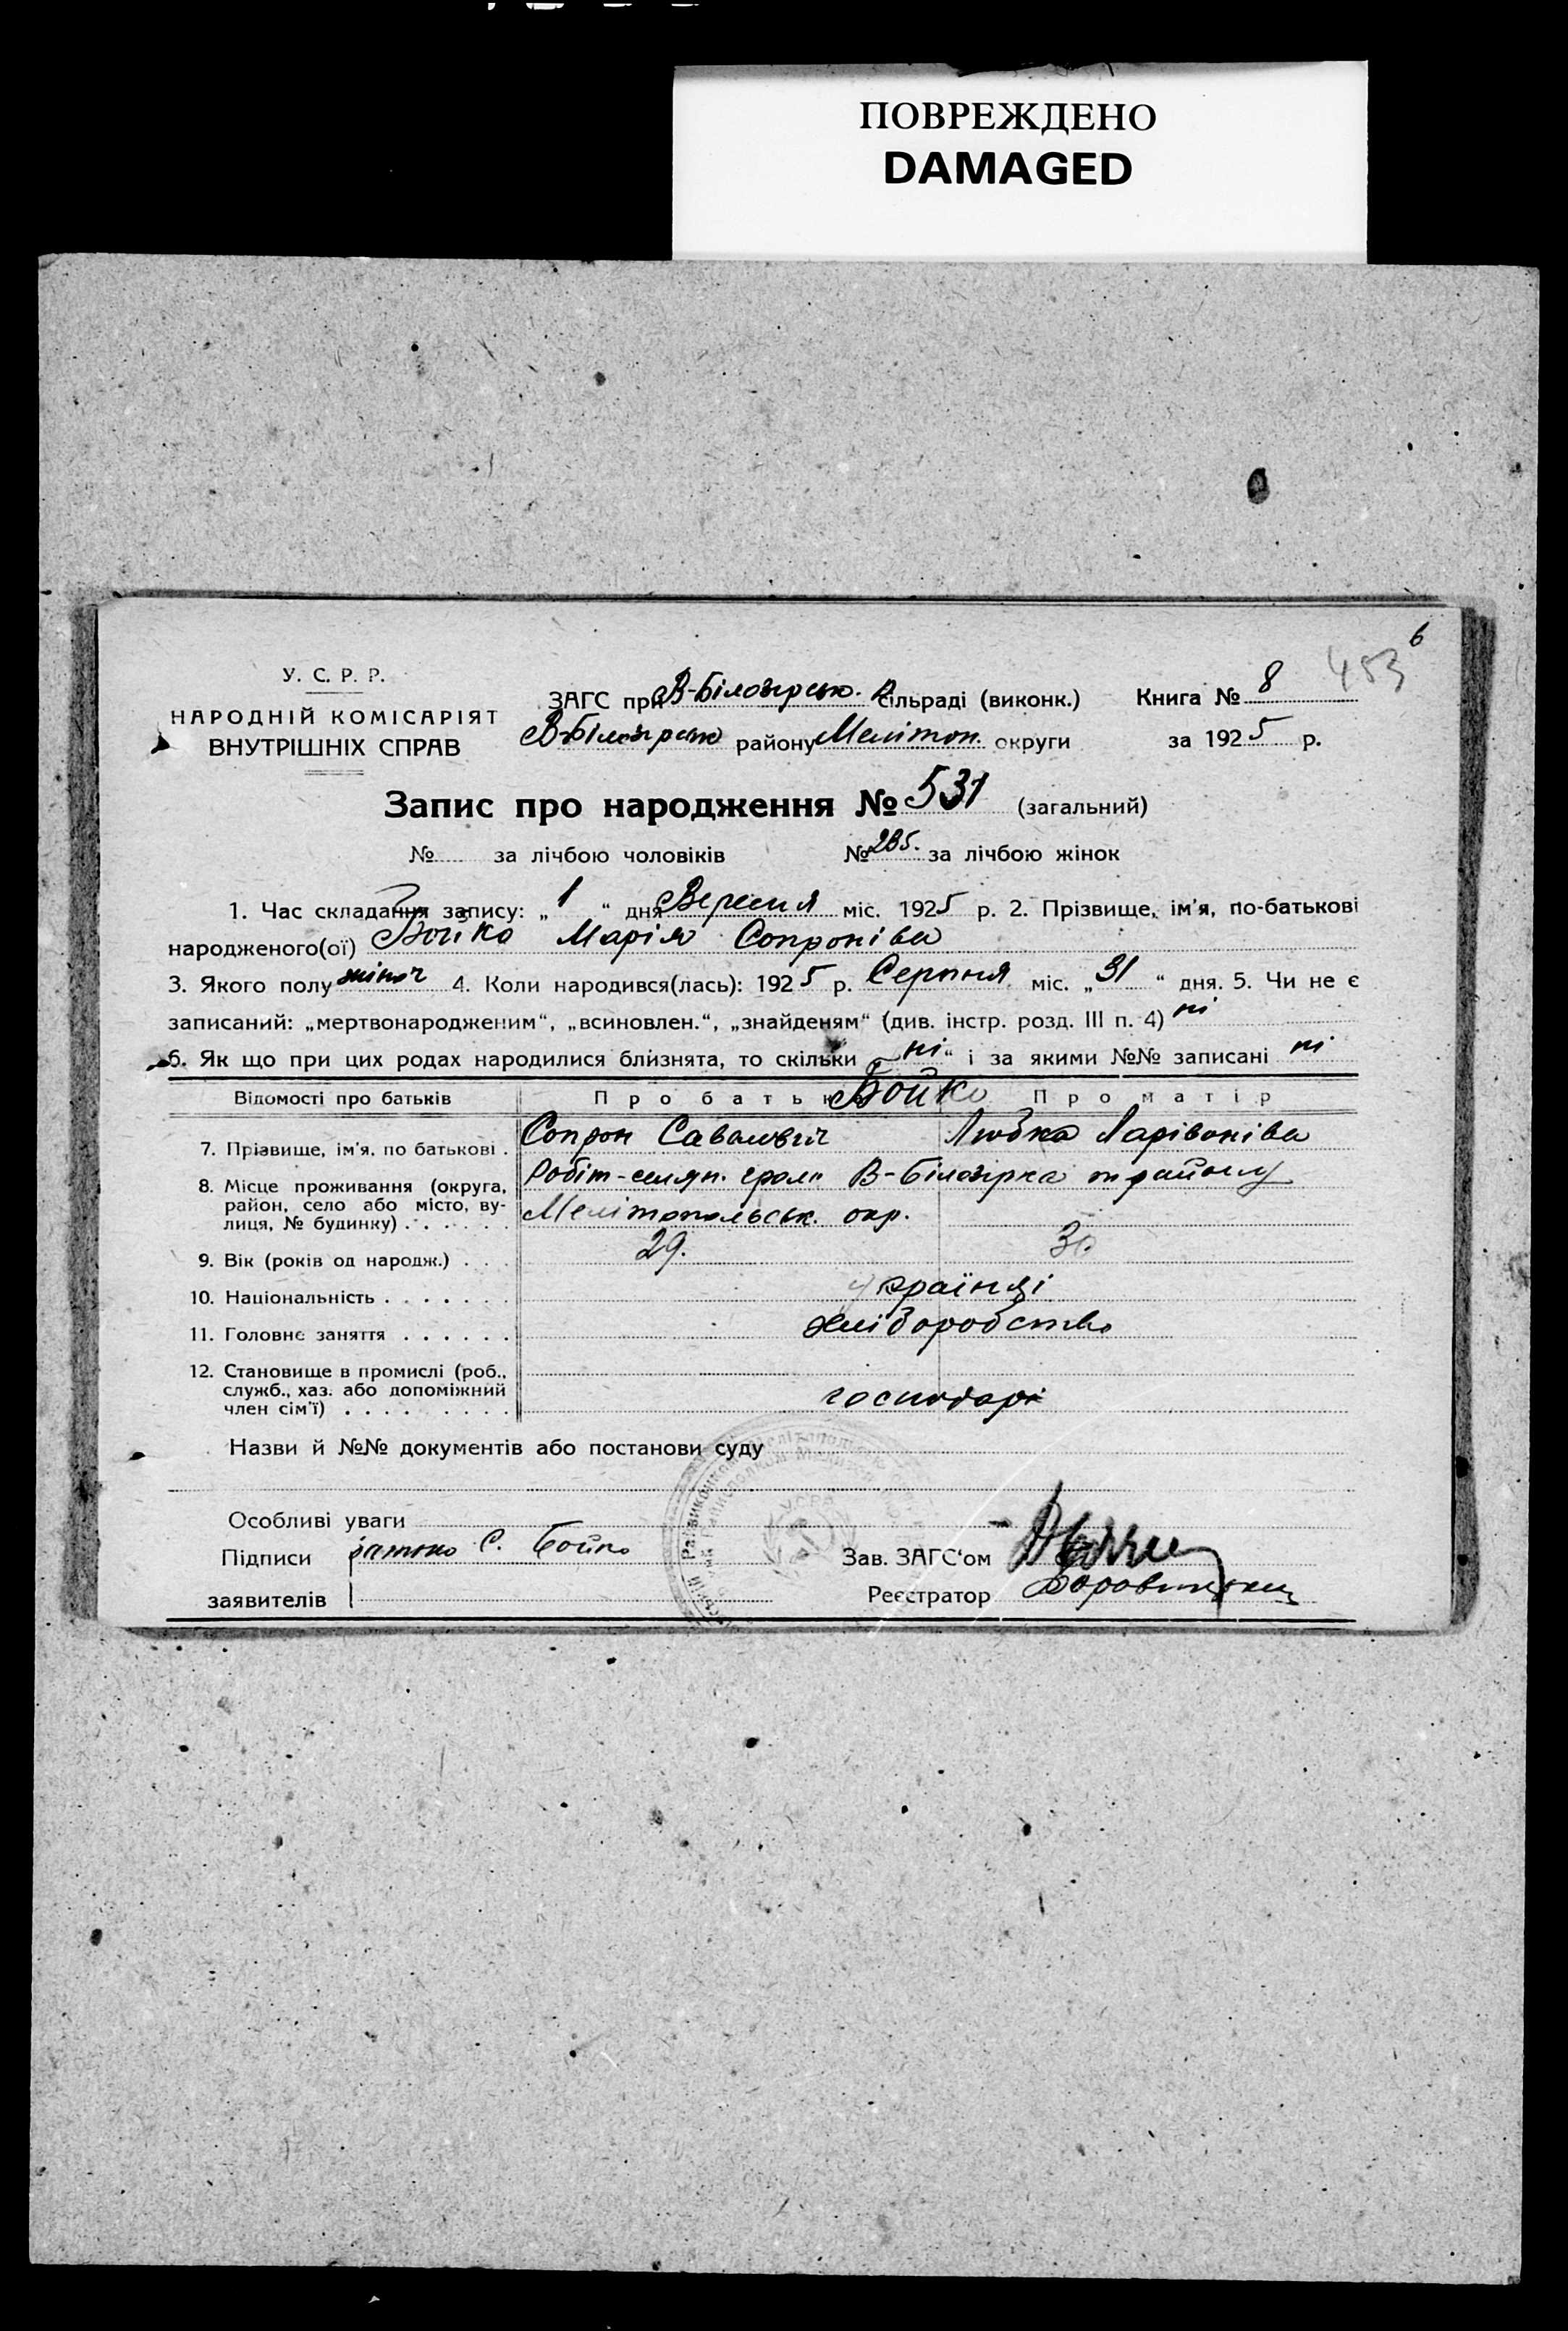 ПОВРЕЖДЕНО
DAMAGED
6
453
У. С. Р. Р.
НАРОДНІЙ КОМІСАРІЯТ
ВНУТРІШНІХ СПРАВ
ЗАГС при В-Білозірсько. Сільраді (виконк.) Книга № 8
В-Білозірсько району Мелітоп. округи за 1925 р.
Запис про народження № 531 (загальний)
№ за лічбою чоловіків № 285. за лічбою жінок
1. Час складання запису: „ 1 “ дня Вересня міс. 1925 р. 2. Прізвище, ім'я, по-батькові
народженого(ої) Бойко Марія Сопронівна
3. Якого полу жіноч 4. Коли народився(лась): 1925 р. Серпня міс. „ 31 “ дня. 5. Чи не є
записаний: „мертвонародженим“, „всиновлен.“, „знайденям“ (див. інстр. розд. III п. 4) ні
6. Як що при цих родах народилися близнята, то скільки „ ні “ і за якими №№ записані ні
Відомості про батьків Про батька Бойко Про матір
7. Прізвище, ім'я, по батькові . Сопрон Савалович Любка Ларівонівна
8. Місце проживання (округа, район, село або місто, вулиця, № будинку) . . . . . Робіт-селян. гром. В-Білозірка т району
Мелітопольськ. окр.
9. Вік (років од народж.) . . . 29. 30.
10. Національність . . . . . . . українці
11. Головне заняття . . . . . . хліборобство
12. Становище в промислі (роб., служб., хаз. або допоміжний член сім'ї) . . . . . . . . господарі
Назви й №№ документів або постанови суду
Особливі уваги
Підписи батько С. Бойко Зав. ЗАГС‘ом
заявителів Реєстратор